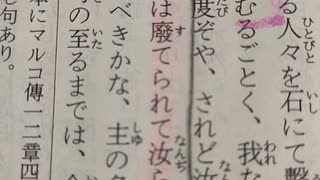 る人々を石にて撃
むるごとく、我な
度ぞや、されど汝
は廢てられて汝ら
べきかな、主の
の至るまでは、
本にマルコ傳一二章四
し句あり。